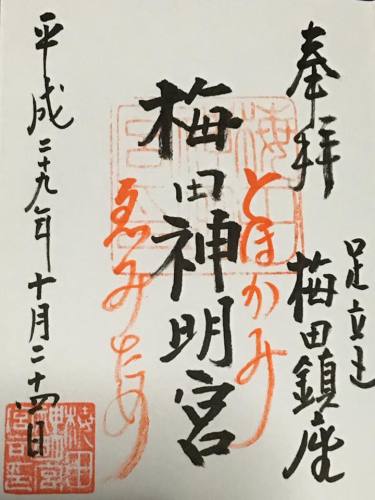 奉拝
足立区
梅田鎮座
とほかみ
梅田神明宮
ゑみため
平成二十九年十月二十四日